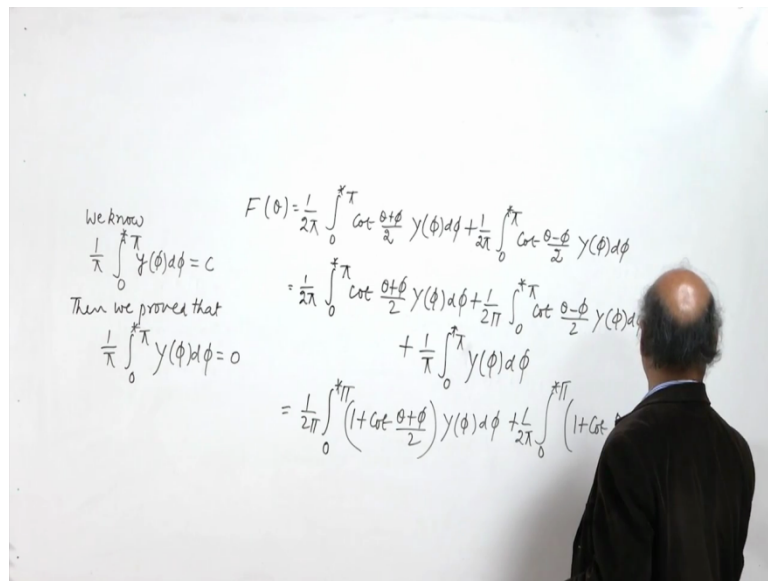 We know
1/π ∫*₀^π y(φ)dφ = c
Then we proved that
1/π ∫*₀^π Y(φ)dφ = 0
F(θ) = 1/2π ∫*₀^π cot (θ+φ)/2 Y(φ)dφ + 1/2π ∫*₀^π cot (θ-φ)/2 Y(φ)dφ
= 1/2π ∫*₀^π cot (θ+φ)/2 Y(φ)dφ + 1/2π ∫*₀^π cot (θ-φ)/2 Y(φ)d
+ 1/π ∫*₀^π Y(φ)dφ
= 1/2π ∫*₀^π (1+cot (θ+φ)/2) Y(φ)dφ + 1/2π ∫*₀^π (1+cot